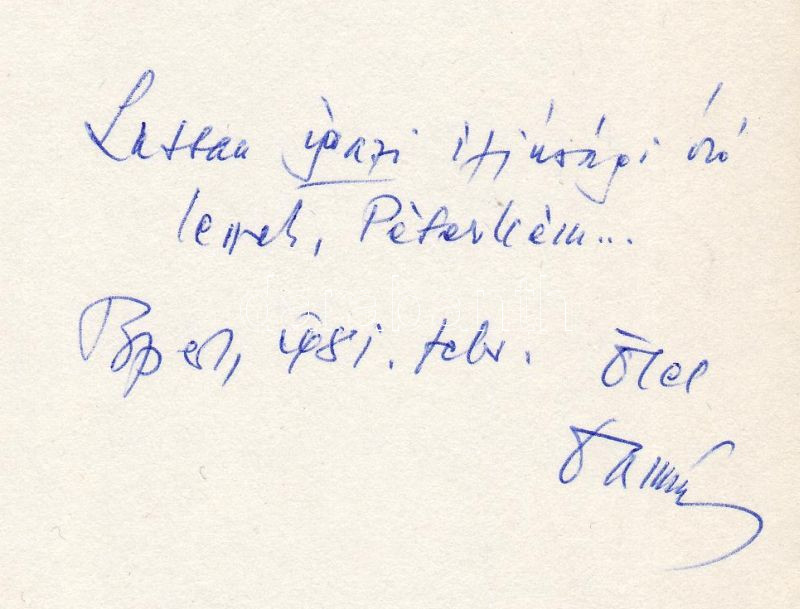 Lassan igazi ifjúsági író
leszek, Péterkém...
Bpest, 981. febr. Ölel
Tamás